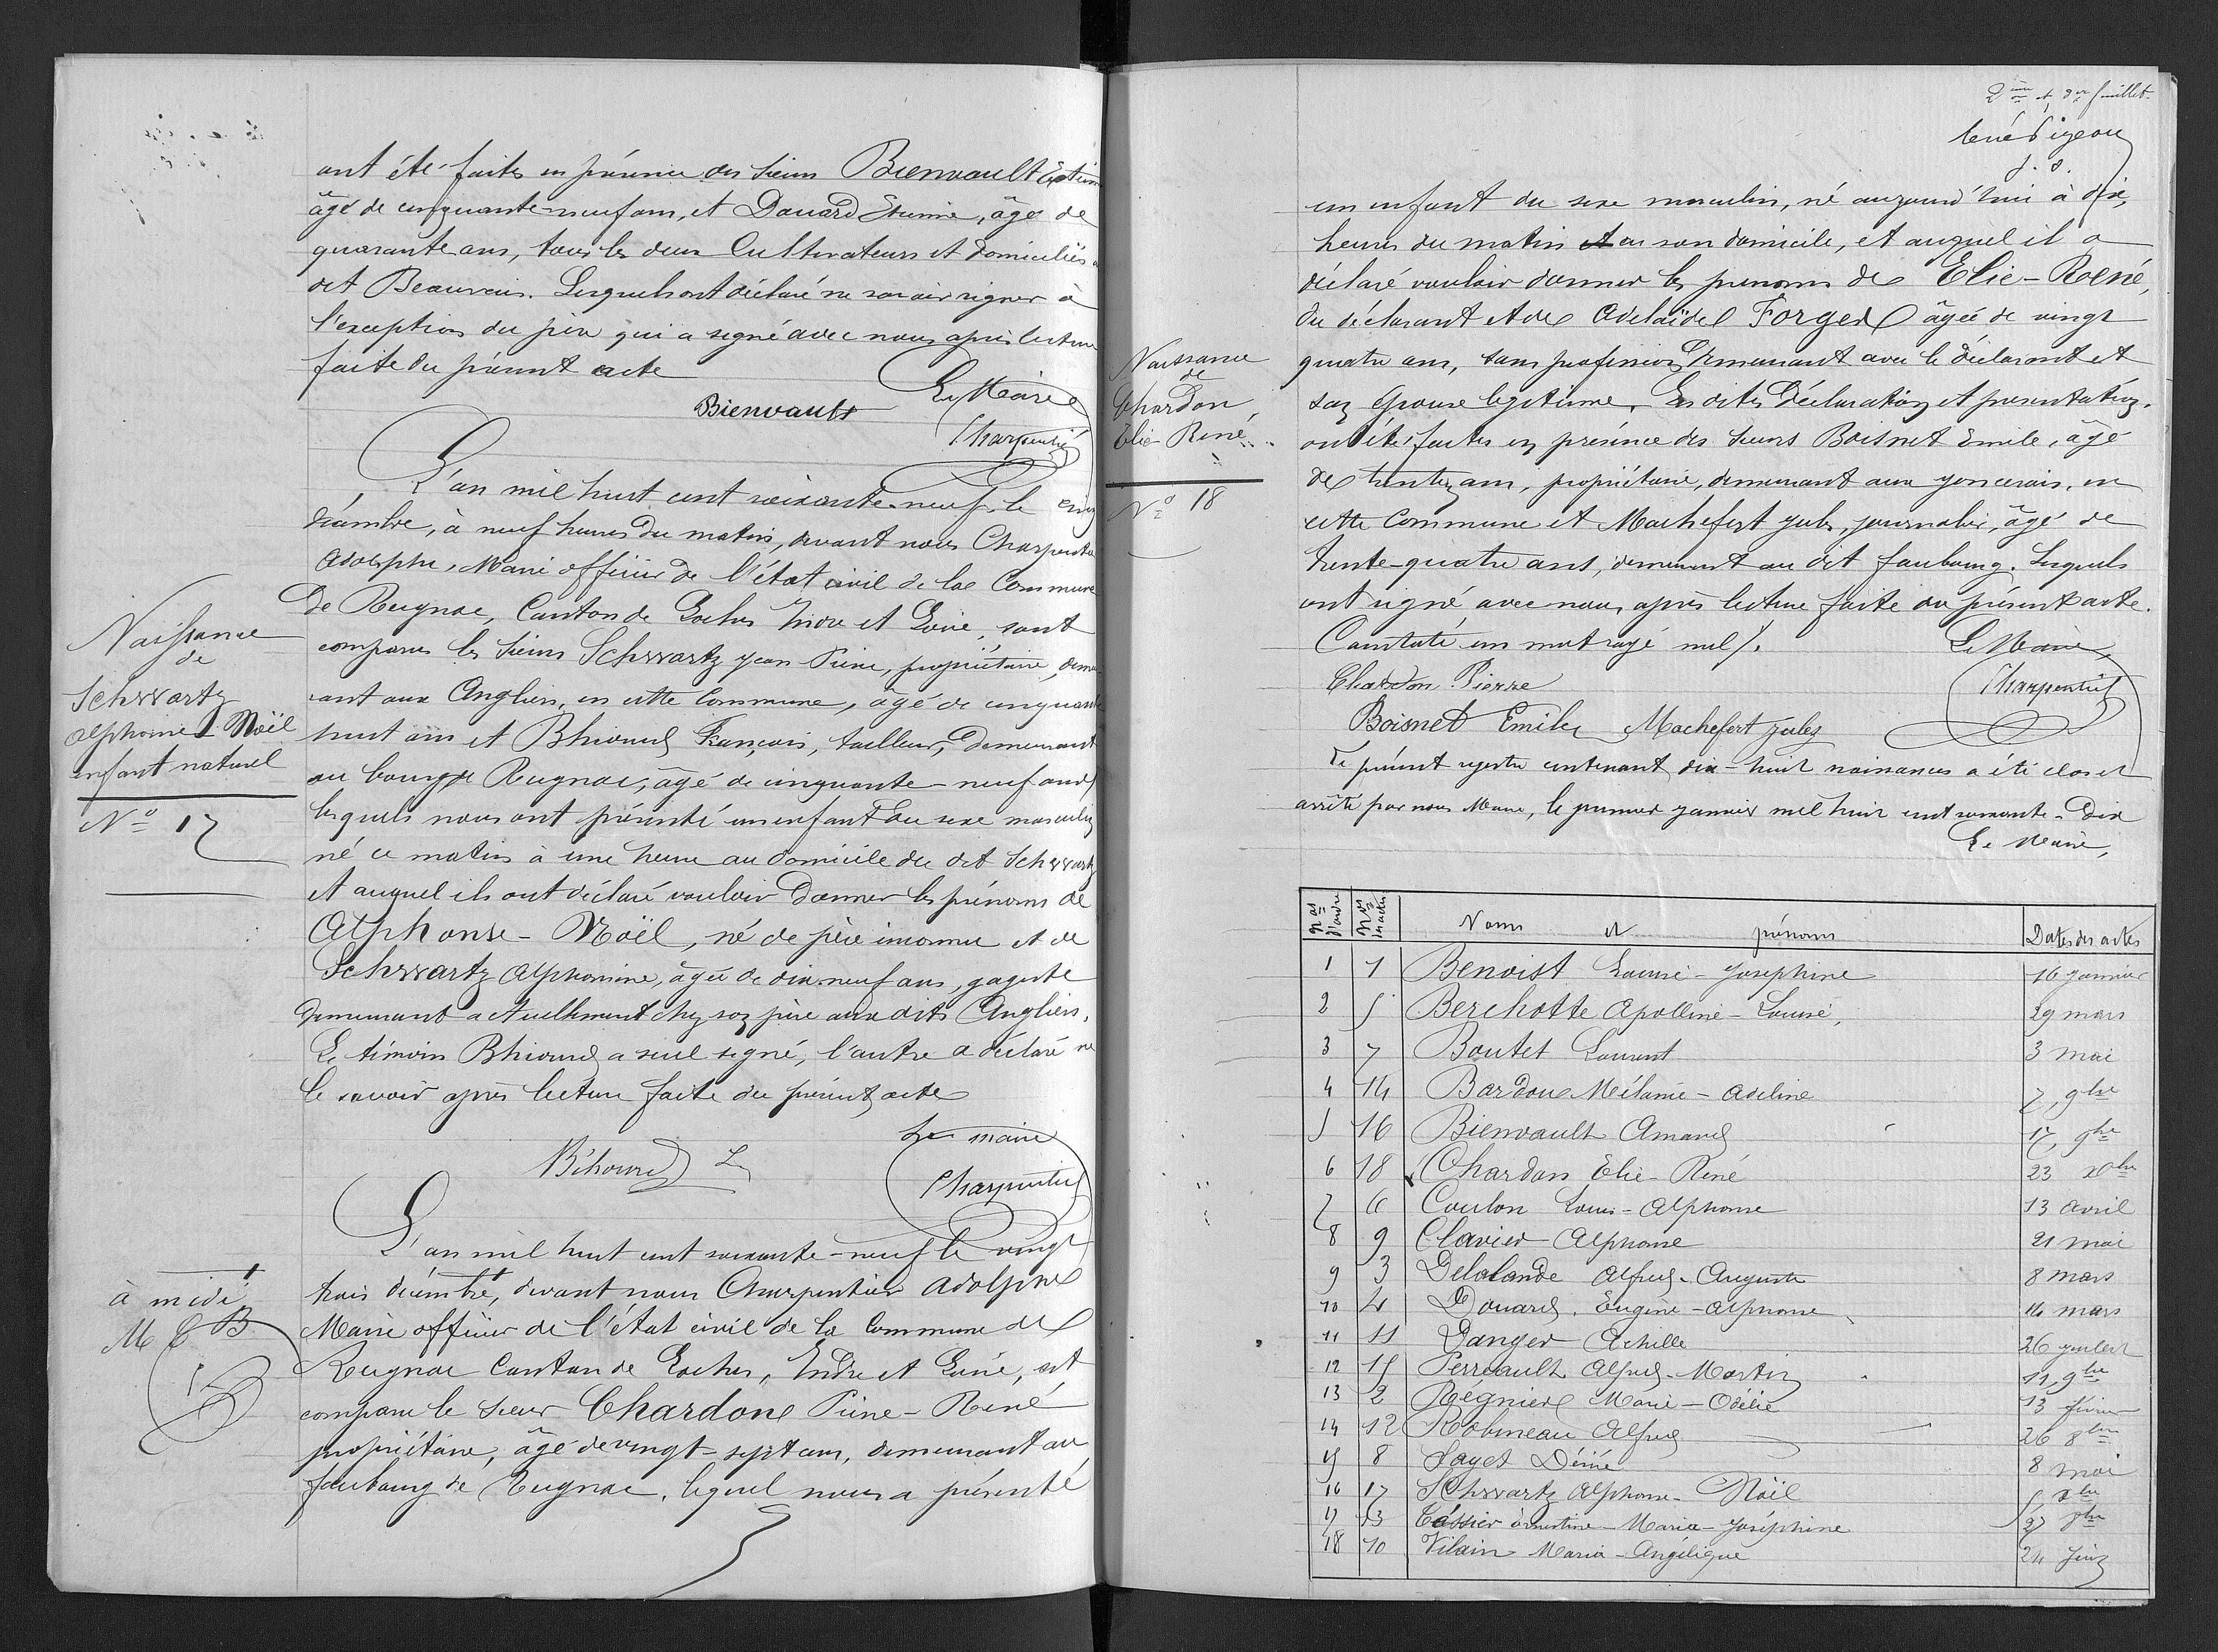 ont été faites en présence des sieurs Bienvault Etienne
âgé de cinquante-neuf ans, et Douard Etienne, âgé de
quarante ans, tous les deux Cultivateurs et domiciliés
dit Beauvais. Lesquels ont déclaré ne savoir signer à
l'exception du père qui a signé avec nous après lecture
faite du présent acte
Le Maire
Bienvault
Charpentier
Naissance
de
Schwartz
Alphonse Noël
enfant naturel
N° 17
L'an mil huit cent soixante-neuf, le cinq
décembre, à neuf heures du matin, devant nous Charpentier
Adolphe, Maire officier de l'état civil de la Commune
de Reignac, Canton de Loches Indre et Loire, sont
comparus les sieurs Schwartz Jean Pierre, propriétaire, demeu
rant aux Angliers, en cette Commune, âgé de cinquante
huit ans et Bhiourd François, tailleur, demeurant
au bourg de Reignac, âgé de cinquante-neuf ans
lesquels nous ont présenté un enfant du sexe masculin
né ce matin à une heure au domicile du dit Schwartz
et auquel ils ont déclaré vouloir donner les prénoms de
Alphonse-Noël, né de père inconnu et de
Schwartz Alphonsine, âgée de dix neuf ans, gagiste
demeurant actuellement chez son père aux dits Angliers.
Le témoin Bhiourd a seul signé, l'autre a déclaré ne
le savoir après lecture faite du présent acte
Le maire
Béhourd
Charpentier
à midi
M C B
L'an mil huit cent soixante-neuf le vingt
trois décembre, devant nous Charpentier Adolphe
Maire officier de l'état civil de la Commune de
Reignac Canton de Loches, Indre et Loire, est
comparu le sieur Chardon Pierre-René
propriétaire, âgé de vingt-sept ans, demeurant au
faubourg de Reignac, lequel nous a présenté
2ème et der feuillet.
René Pigeon
Naissance
de
Chardon
Elie-René
N° 18
un enfant du sexe masculin, né aujourd'hui à dix
heures du matin et en son domicile, et auquel il a
déclaré vouloir donner les prénoms de Elie-René,
du déclarant et de Adelaïde Forget âgée de vingt
quatre ans, sans profession demeurant avec le déclarant et
son épouse légitime. Les dites Déclaration et présentation
ont été faites en présence des sieurs Boisnet Emile, âgé
de trente ans, propriétaire, demeurant aux Joncerais, en
cette Commune et Machefert Jules, journalier, âgé de
trente-quatre ans, demeurant au dit faubourg. Lesquels
ont signé avec nous, après lecture faite du présent acte.
Constaté un mot rayé nul.
Le Maire
Chardon Pierre
Charpentier
Boisnet Emile Machefert Jules
Le présent registre contenant dix-huit naissances a été clos et
arrêté par nous Maire, le premier janvier mil huit cent soixante-dix
Le Maire,
Nos d'ordre Nos des actes Noms et prénoms Dates des actes
1 1 Benoist Louise-Joséphine 16 janvier
2 5 Berchotte Apolline-Louise 29 mars
3 7 Boutet Laurent 3 mai
4 14 Bardou Mélanie-Adeline 7, 9bre
5 16 Bienvault Amand 17, 9bre
6 18 Chardon Elie-René 23 Xbre
7 6 Coulon Louis-Alphonse 13 avril
8 9 Clavier Alphonse 21 mai
9 3 Delalande Alfred-Auguste 8 mars
10 4 Douard, Eugène-Alphonse 14 mars
11 11 Danger Achille 26 juillet
12 15 Perreault Alfred-Martin 11, 9bre
13 2 Régnier Marie-Odélie 13 février
14 12 Robineau Alfred 26 8bre
15 8 Sayet Désiré 8 mai
16 17 Schwartz Alphonse-Noël 5, Xbre
17 13 Tessier Ernestine-Maria-Joséphine 27 8bre
18 10 Vilain Maria-Angélique 24 Juin